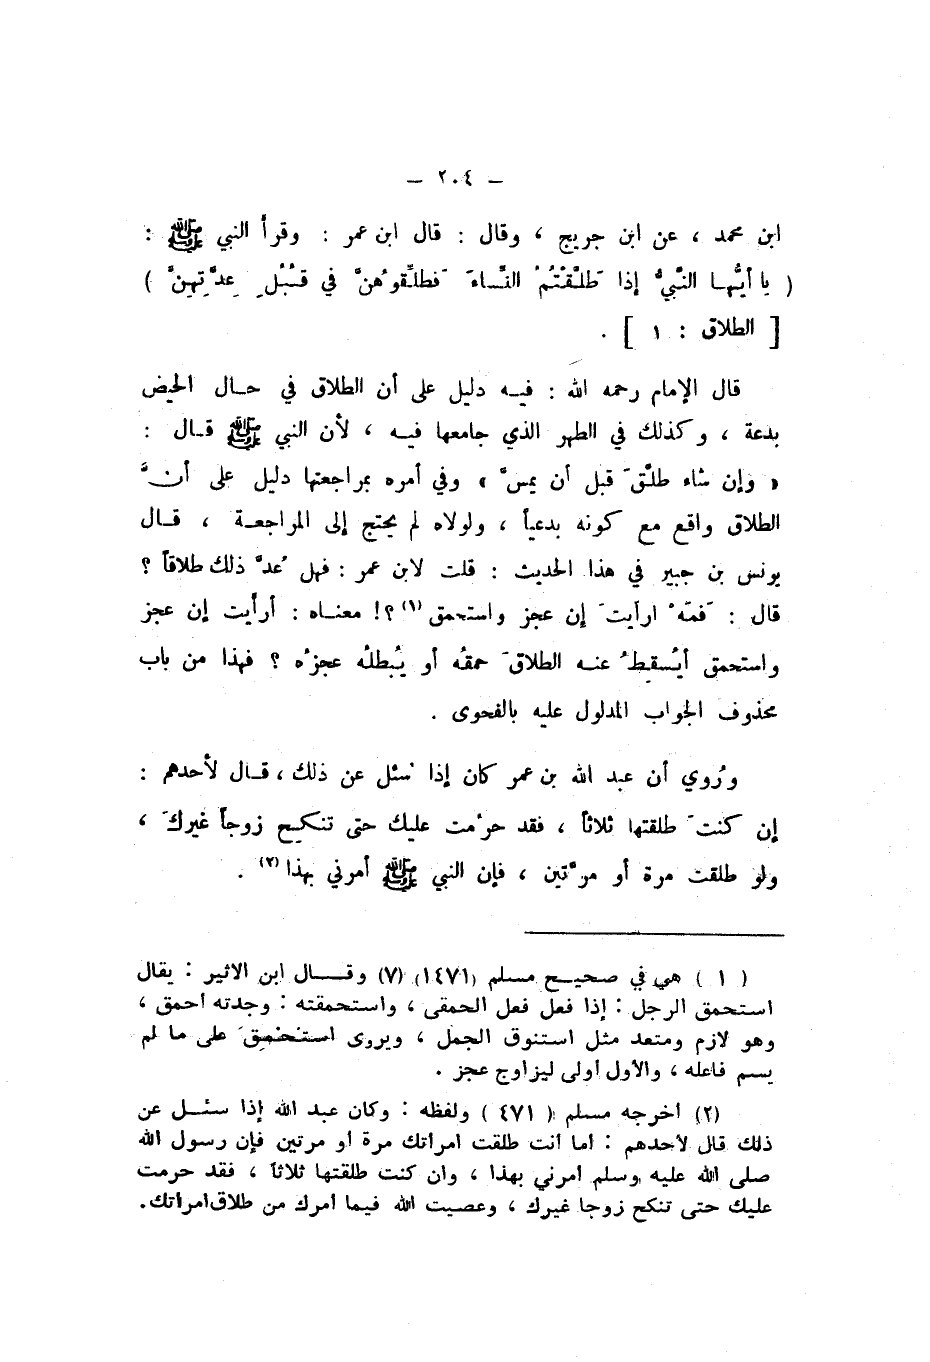 – ٢٠٤ –
ابن محمد ، عن ابن جريج ، وقال : قال ابن عمر : وقرأ النبي ﷺ :
( يا أيُّهـا النَّبيُّ إذا طَلَّقْتُمُ النَّساءَ فَطلِّقوُهنَّ في قُبُلِ عِدَّتِهِنَّ )
[ الطلاق : ١ ] .
قال الإمام رحمه الله : فيـه دليل على أن الطلاق في حـال الحيض
بدعة ، وكذلك في الطهر الذي جامعها فيـه ، لأن النبي ﷺ قـال :
« وإن شاء طلَّقَ قبل أن يمسَّ » وفي أمره بمراجعتها دليل على أنَّ
الطلاق واقع مع كونه بدعياً ، ولولاه لم يحتج إلى المراجعـة ، قـال
يونس بن جبير في هذا الحديث : قلت لابن عمر : فهل عُدَّ ذلك طلاقاً ؟
قال : فَمَهْ ارأيتَ إن عجز واستحمق (١) ؟! معنـاه : أرأيت إن عجز
واستحمق أيُسقِطُ عنـه الطلاقَ حمقُه أو يُبطلُه عجزُه ؟ فهذا من باب
محذوف الجواب المدلول عليه بالفحوى .
ورُوي أن عبد الله بن عمر كان إذا سُئل عن ذلك ، قـال لأحدهم :
إن كنتَ طلقتها ثلاثاً ، فقد حرُمت عليك حتى تنكـح زوجاً غيركَ ،
ولو طلقت مرة أو مرَّتين ، فإن النبي ﷺ أمرني بهذا (٢) .
( ١ ) هي في صحيـح مسلم (١٤٧١) (٧) وقـــال ابن الاثير : يقال
استحمق الرجل : إذا فعل فعل الحمقى ، واستحمقته : وجدته احمق ،
وهو لازم ومتعد مثل استنوق الجمل ، ويروى استُحْمِقَ على ما لم
يسم فاعله ، والأول أولى ليزاوج عجز .
(٢) اخرجه مسلم ( ٤٧١ ) ولفظه : وكان عبد الله إذا سئــل عن
ذلك قال لأحدهم : اما انت طلقت امراتك مرة او مرتين فإن رسول الله
صلى الله عليه وسلم امرني بهذا ، وان كنت طلقتها ثلاثا ، فقد حرمت
عليك حتى تنكح زوجا غيرك ، وعصيت الله فيما امرك من طلاق امراتك.